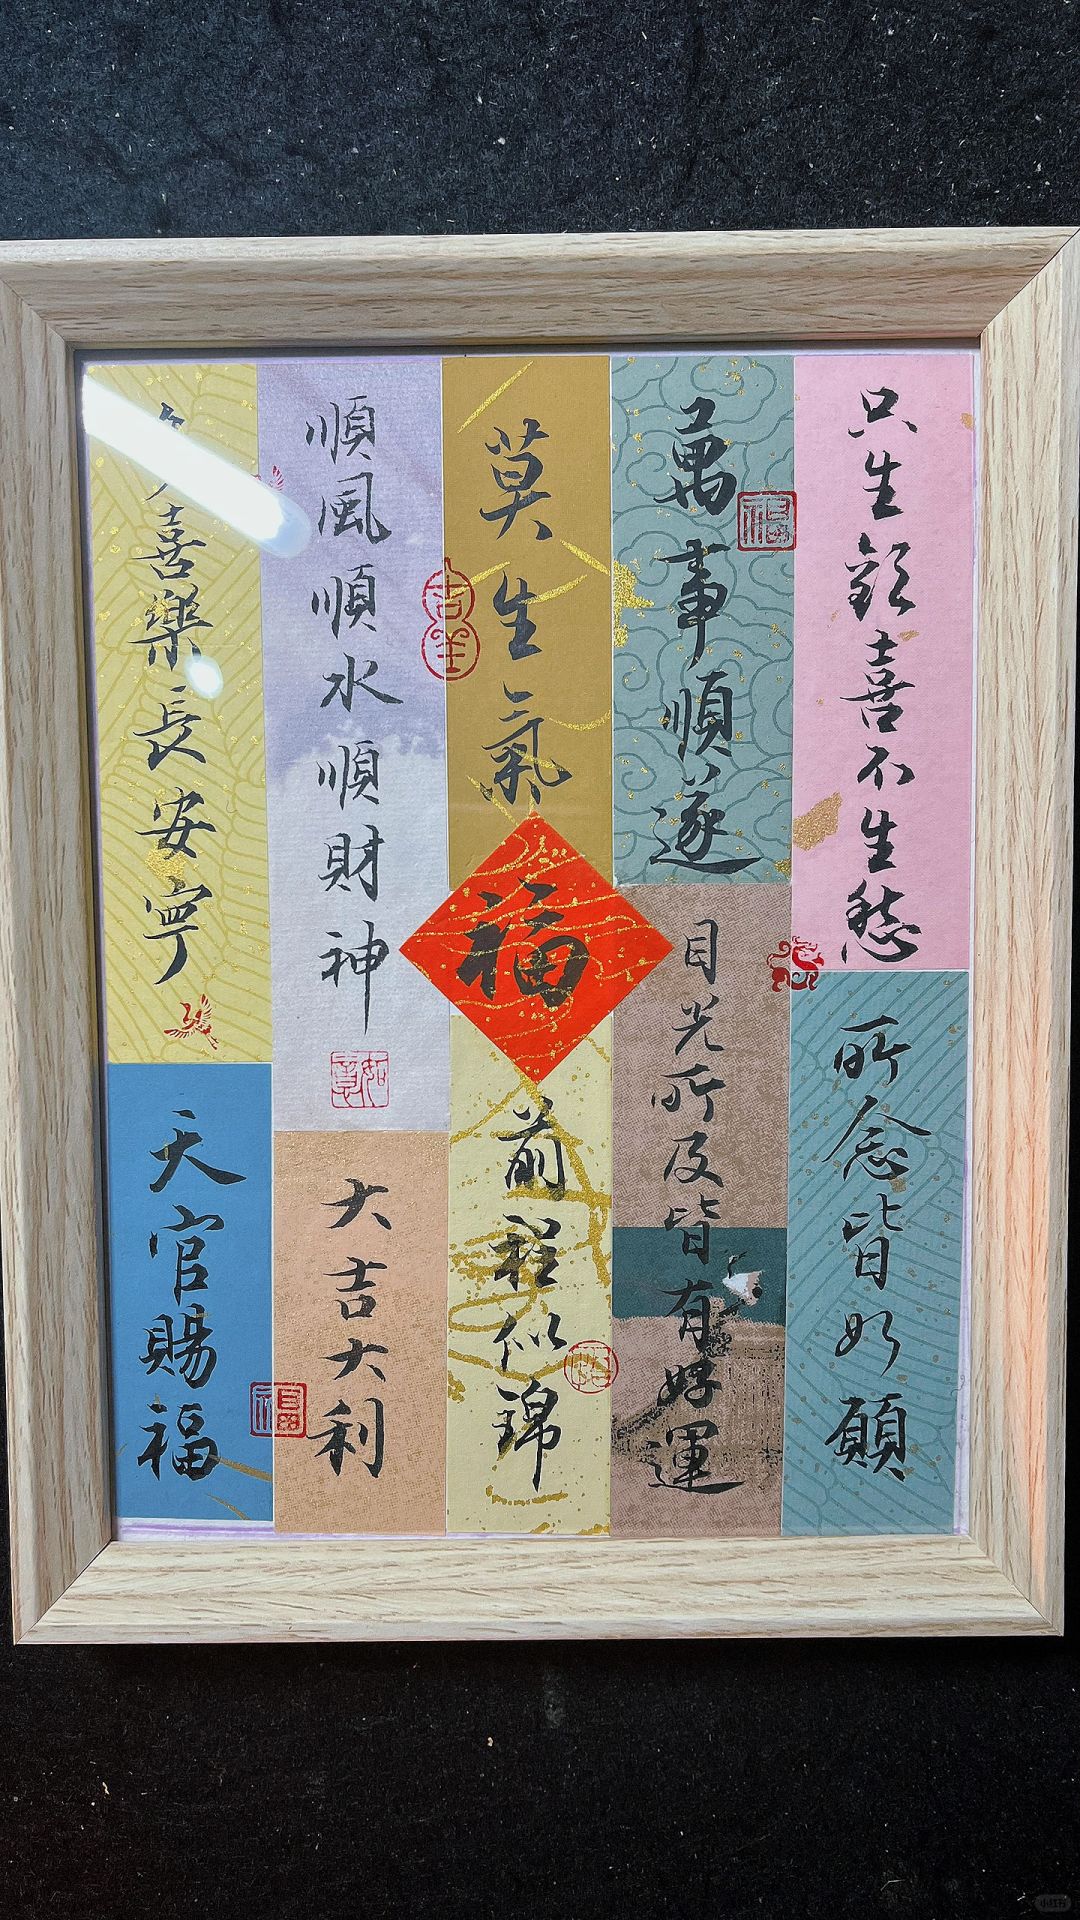 只生歡喜不生愁
所念皆如願
萬事順遂
福
目光所及皆有好運
莫生氣
吉祥
福
前程似錦
順風順水順財神
如意
大吉大利
喜樂長安寧
天官賜福
福
小红书